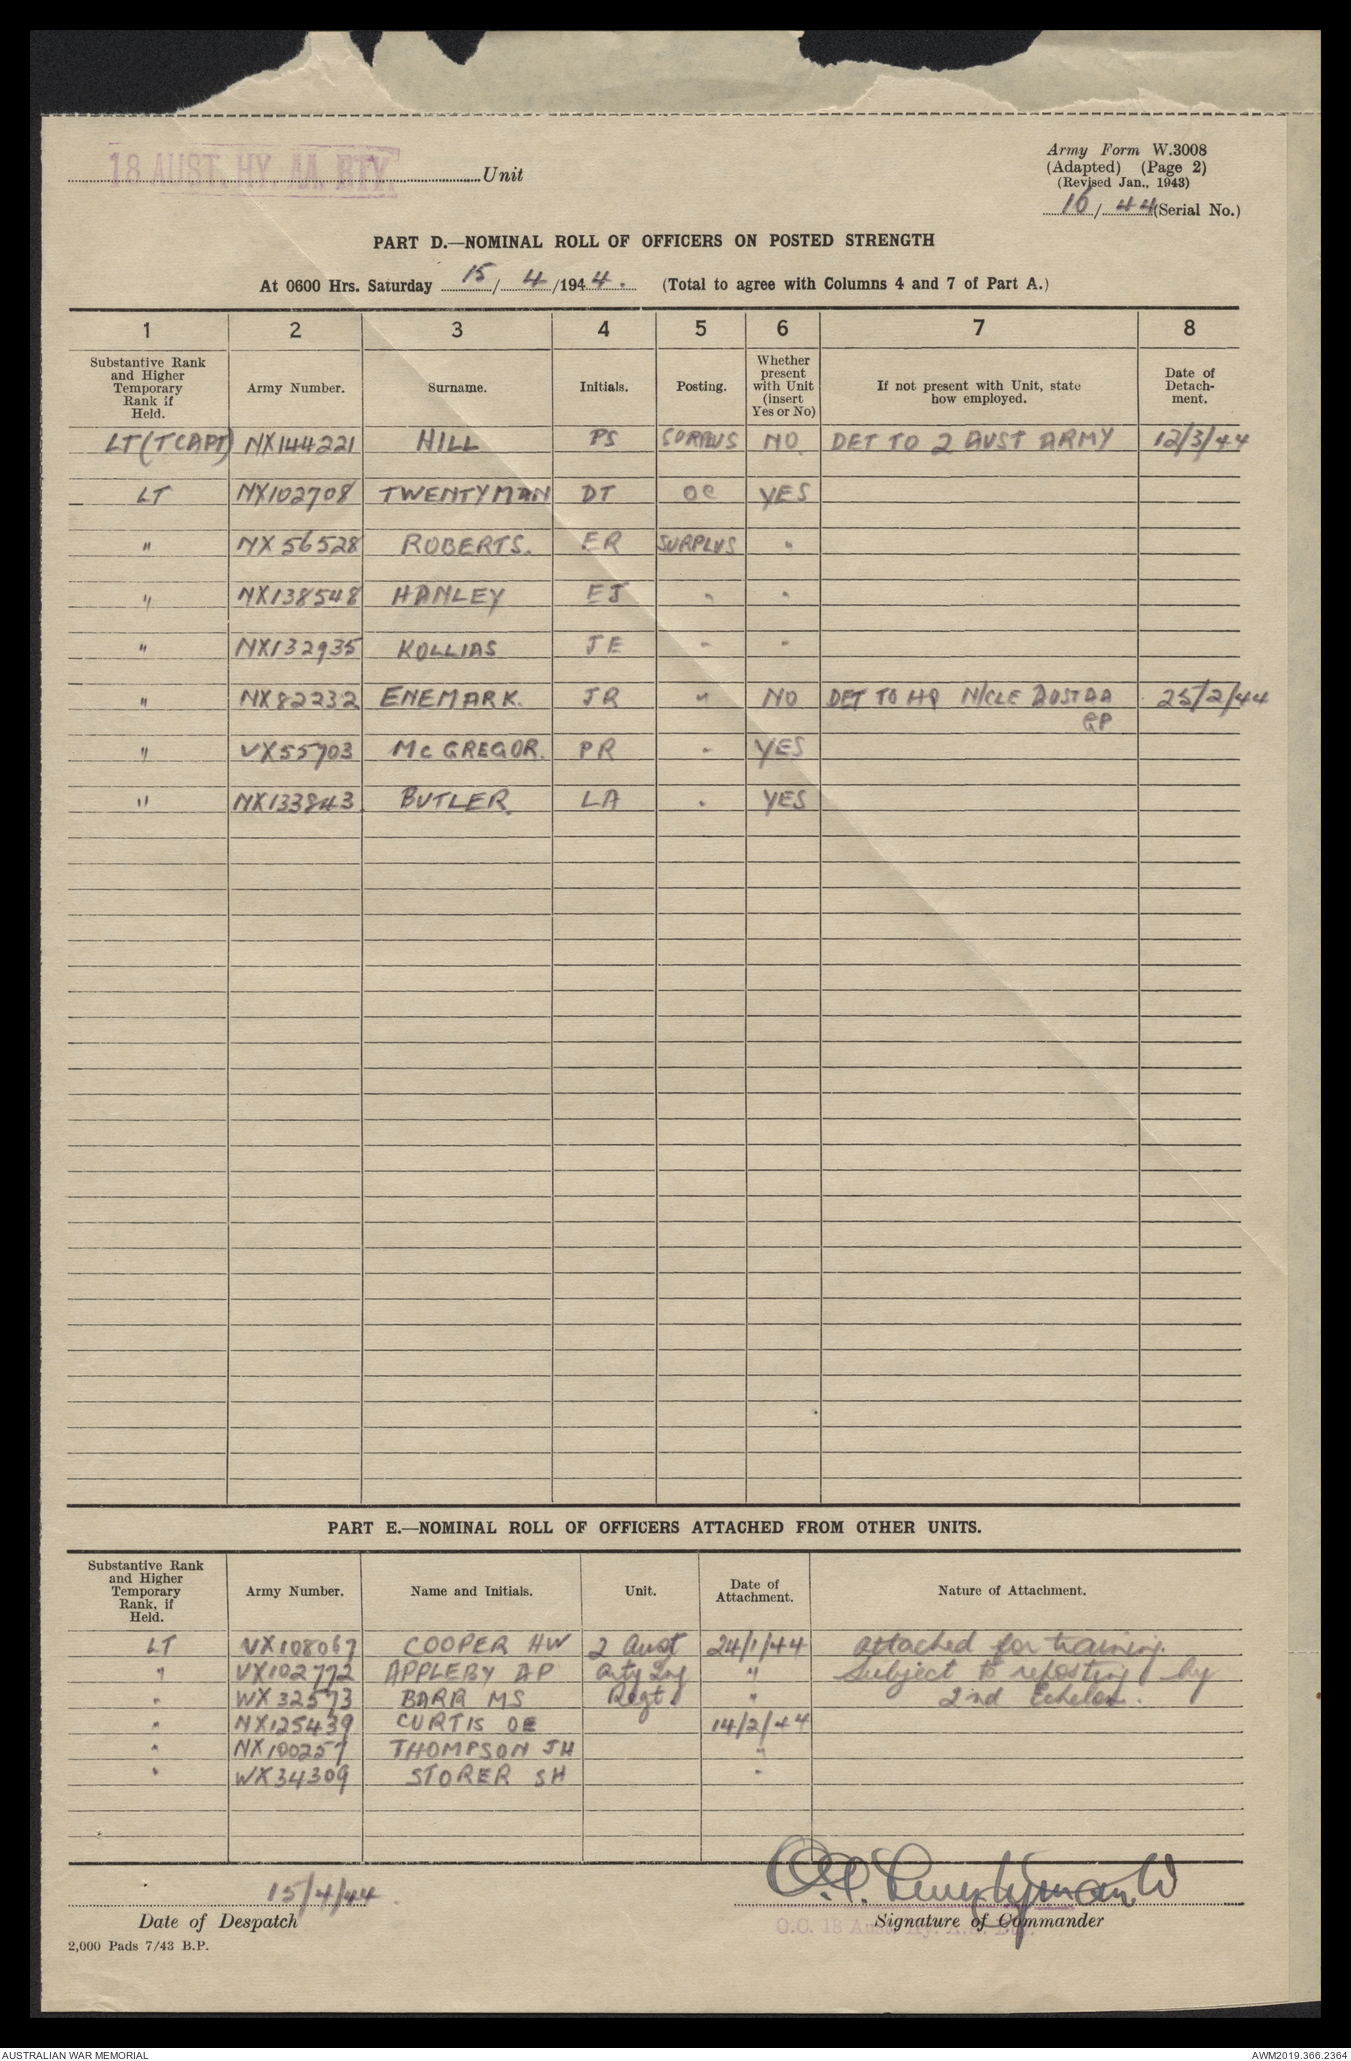 18 AUST. HY. AA. BTY. Unit
Army Form W.3008
(Adapted) (Page 2)
(Revised Jan., 1943)
16/44 (Serial No.)
PART D.—NOMINAL ROLL OF OFFICERS ON POSTED STRENGTH
At 0600 Hrs. Saturday 15/4/1944. (Total to agree with Columns 4 and 7 of Part A.)
1 2 3 4 5 6 7 8
Substantive Rank and Higher Temporary Rank if Held. Army Number. Surname. Initials. Posting. Whether present with Unit (insert Yes or No) If not present with Unit, state how employed. Date of Detachment.
LT (TCAPT) NX144221 HILL PS SURPLUS NO. DET TO 2 AUST ARMY 12/3/44
LT NX102708 TWENTYMAN DT OC YES
" NX56528 ROBERTS. ER SURPLUS "
" NX138548 HANLEY EJ " "
" NX132935 KOLLIAS JE " "
" NX82232 ENEMARK. JR " NO DET TO HQ N/CLE AUST AA 25/2/44
GP
" VX55703 McGREGOR. PR " YES
" NX133843 BUTLER. LA " YES
PART E.—NOMINAL ROLL OF OFFICERS ATTACHED FROM OTHER UNITS.
Substantive Rank and Higher Temporary Rank, if Held. Army Number. Name and Initials. Unit. Date of Attachment. Nature of Attachment.
LT VX108067 COOPER HW 2 Aust 24/1/44 attached for training.
" VX102772 APPLEBY AP Arty Trg " Subject to reposting by
" WX32573 BARR MS Regt " 2nd Echelon.
" NX125439 CURTIS OE 14/2/44
" NX100257 THOMPSON JH "
" WX34309 STORER SH "
15/4/44. D.T. Twentyman Lt
Date of Despatch Signature of Commander
O.C. 18 Aust. Hy. A.A. Bty.
2,000 Pads 7/43 B.P.
AUSTRALIAN WAR MEMORIAL AWM2019.366.2364